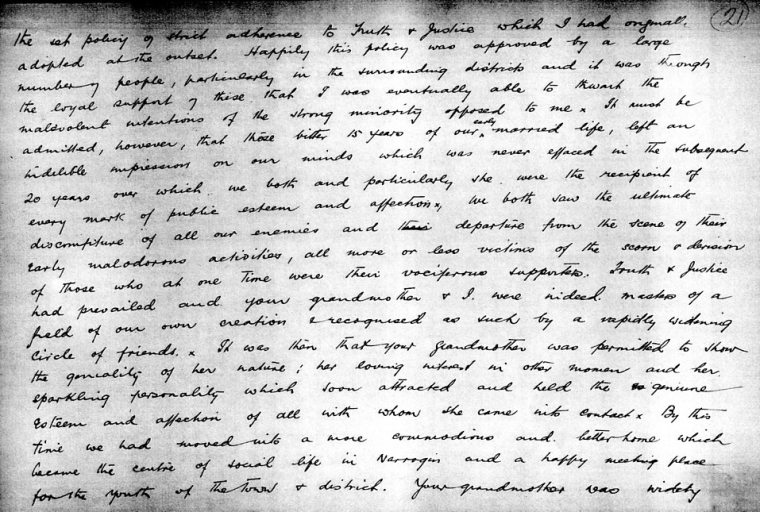 (21)
the set policy of strict adherence to Truth & Justice which I had originall.
adopted at the outset. Happily this policy was approved by a large
number of people, particularly in the surrounding districts and it was through
the loyal support of these that I was eventually able to thwart the
malevolent intentions of the strong minority opposed to me x It must be
admitted, however, that those bitter 15 years of our early married life, left an
indelible impression on our minds which was never effaced in the subsequent
20 years over which we both and particularly she were the recipient of
every mark of public esteem and affection x, We both saw the ultimate
discomfiture of all our enemies and their departure from the scene of their
early malodorous activities, all more or less victims of the scorn & derision
of those who at one time were their vociferous supporters. Truth & Justice
had prevailed and your grandmother & I. were indeed. masters of a
field of our own creation & recognised as such by a rapidly widening
circle of friends. x It was then that your grandmother was permitted to show
the geniality of her nature; her loving interest in other women and her
sparkling personality which soon attracted and held the genuine
esteem and affection of all with whom she came into contact x By this
time we had moved into a more commodious and. better home which
became the centre of social life in Narrogin and a happy meeting place
for the youth of the town & district. Your grandmother was widely